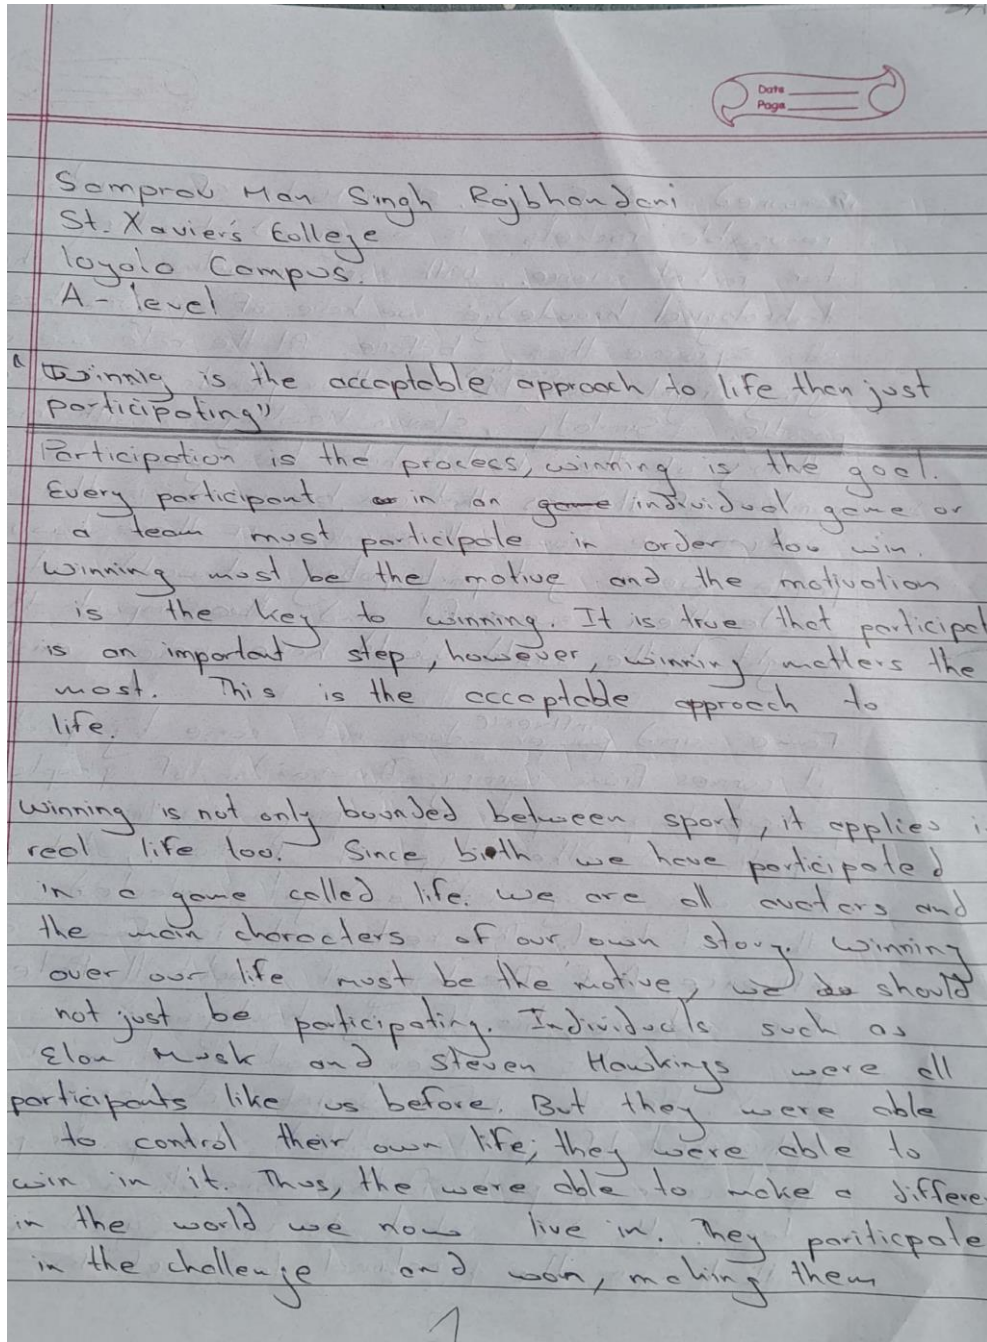 Date
Page
Samprav Man Singh Rajbhandari
St. Xavier's College
loyola Campus.
A - level
"Winnig is the acceptable approach to life then just
participating"
Participation is the process, winning is the goal.
Every participant in an game individual game or
a team must participate in order too win.
Winning must be the motive and the motivation
is the key to winning. It is true that participat
is an important step, however, winning matters the
most. This is the acceptable approach to
life.
Winning is not only bounded between sport, it applies i
real life too. Since birth we have participated
in a game called life. We are all avatars and
the main characters of our own story. Winning
over our life must be the motive, we do should
not just be participating. Individuals such as
Elon Musk and Steven Hawkings were all
participants like us before. But they were able
to control their own life; they were able to
win in it. Thus, the were able to make a differe
in the world we now live in. They pariticpate
in the challenge and won, making them
1